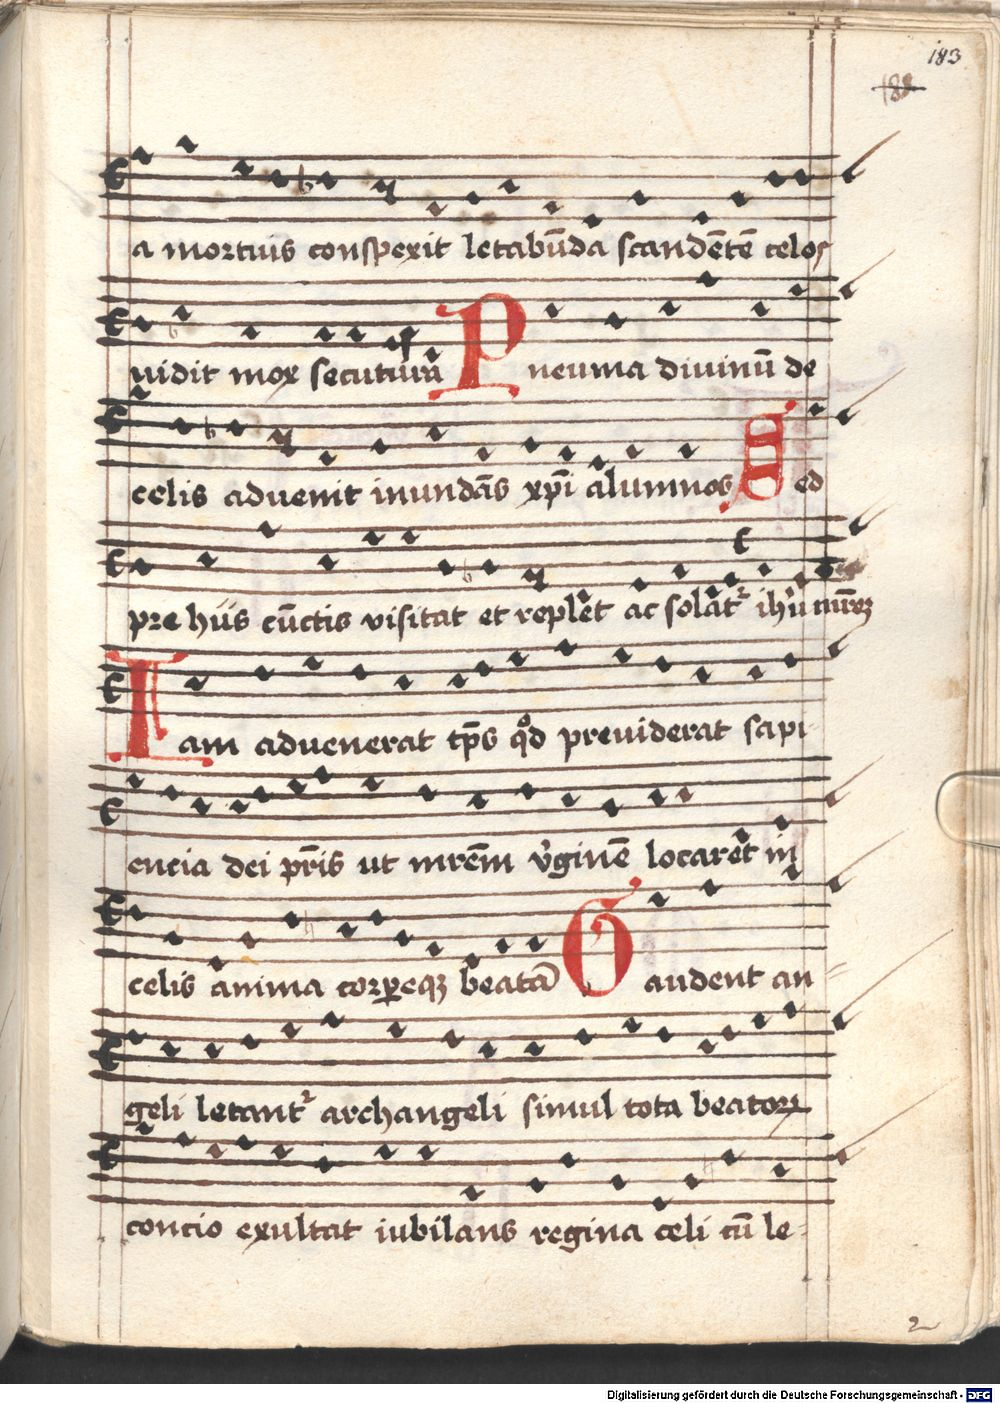 183
a mortuis conspexit letabūda scandētē celos
uidit mox secuturā Pneuma diuinū de
celis aduenit inundās xp̄i alumnos Sed
pre hiis cūctis visitat et replet ac solat ihū
Iam aduenerat tp̄s qͦd preuiderat sapi
encia dei pr̄is ut mrēm v̓ginē locaret in
celis anima corpeqꝫ beatā Gaudent an
geli letant archangeli simul tota beatoꝝ
concio exultat iubilans regina celi cū le-
2
Digitalisierung gefördert durch die Deutsche Forschungsgemeinschaft - DFG